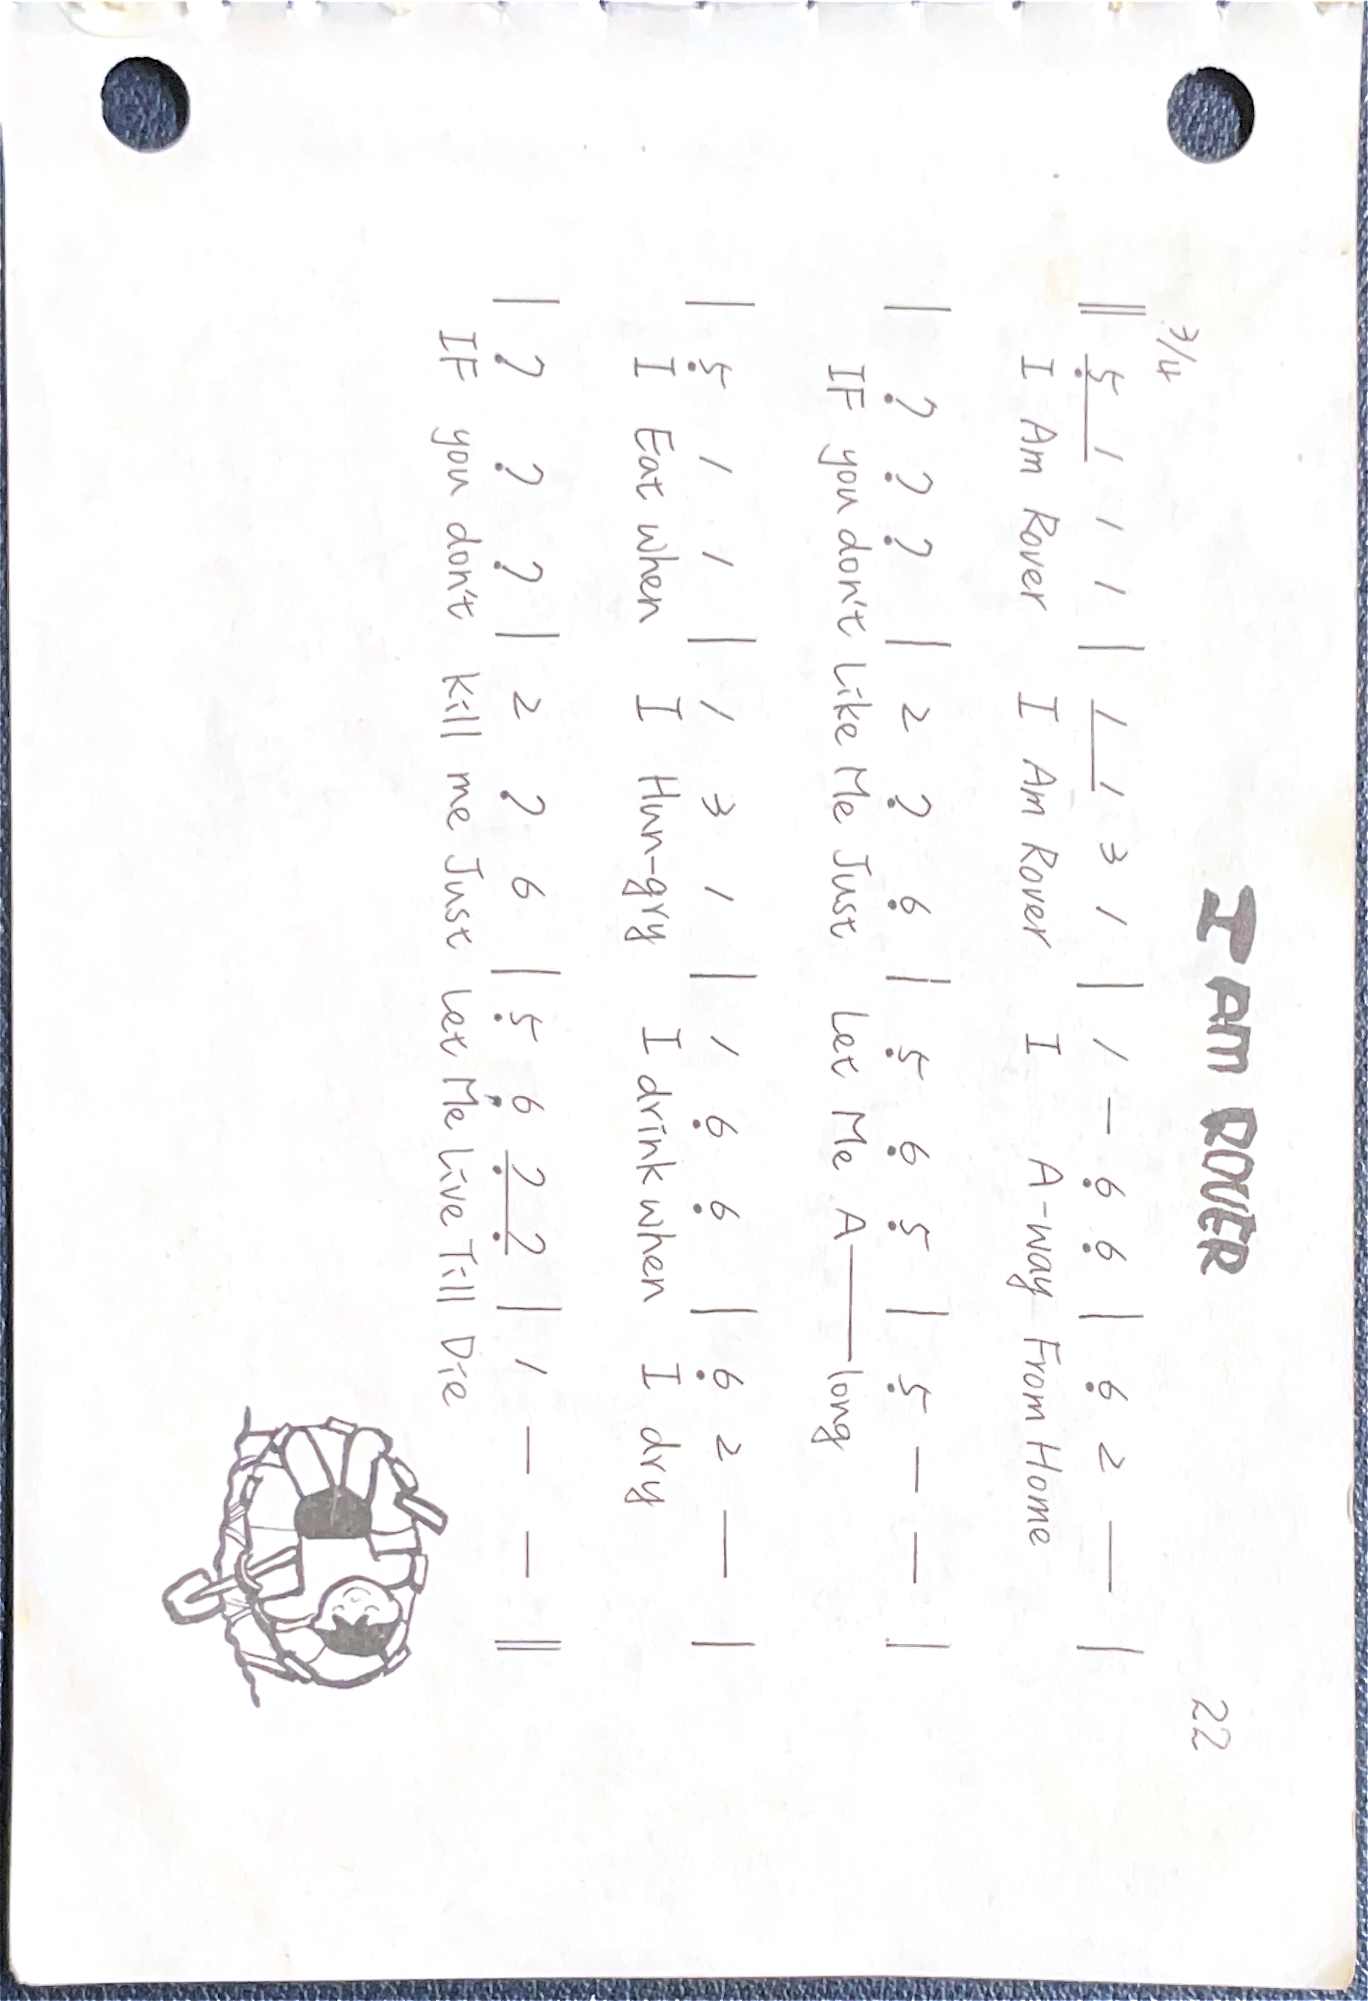 I AM ROVER
22
3/4
‖ 5̣ 1 1 1 | 1 1 3 1 | 1 — 6̣ 6̣ | 6̣ 2 — |
I Am Rover I Am Rover I A-way From Home
| 7̣ 7̣ 7̣ | 2 7̣ 6̣ | 5̣ 6̣ 5̣ | 5̣ — — |
IF you don't Like Me Just Let Me A——long
| 5̣ 1 1 | 1 3 1 | 1 6̣ 6̣ | 6̣ 2 — |
I Eat when I Hun-gry I drink when I dry
| 7̣ 7̣ 7̣ | 2 7̣ 6 | 5̣ 6̣ 7̣ 7̣ | 1 — — ‖
IF you don't Kill me Just Let Me Live Till Die